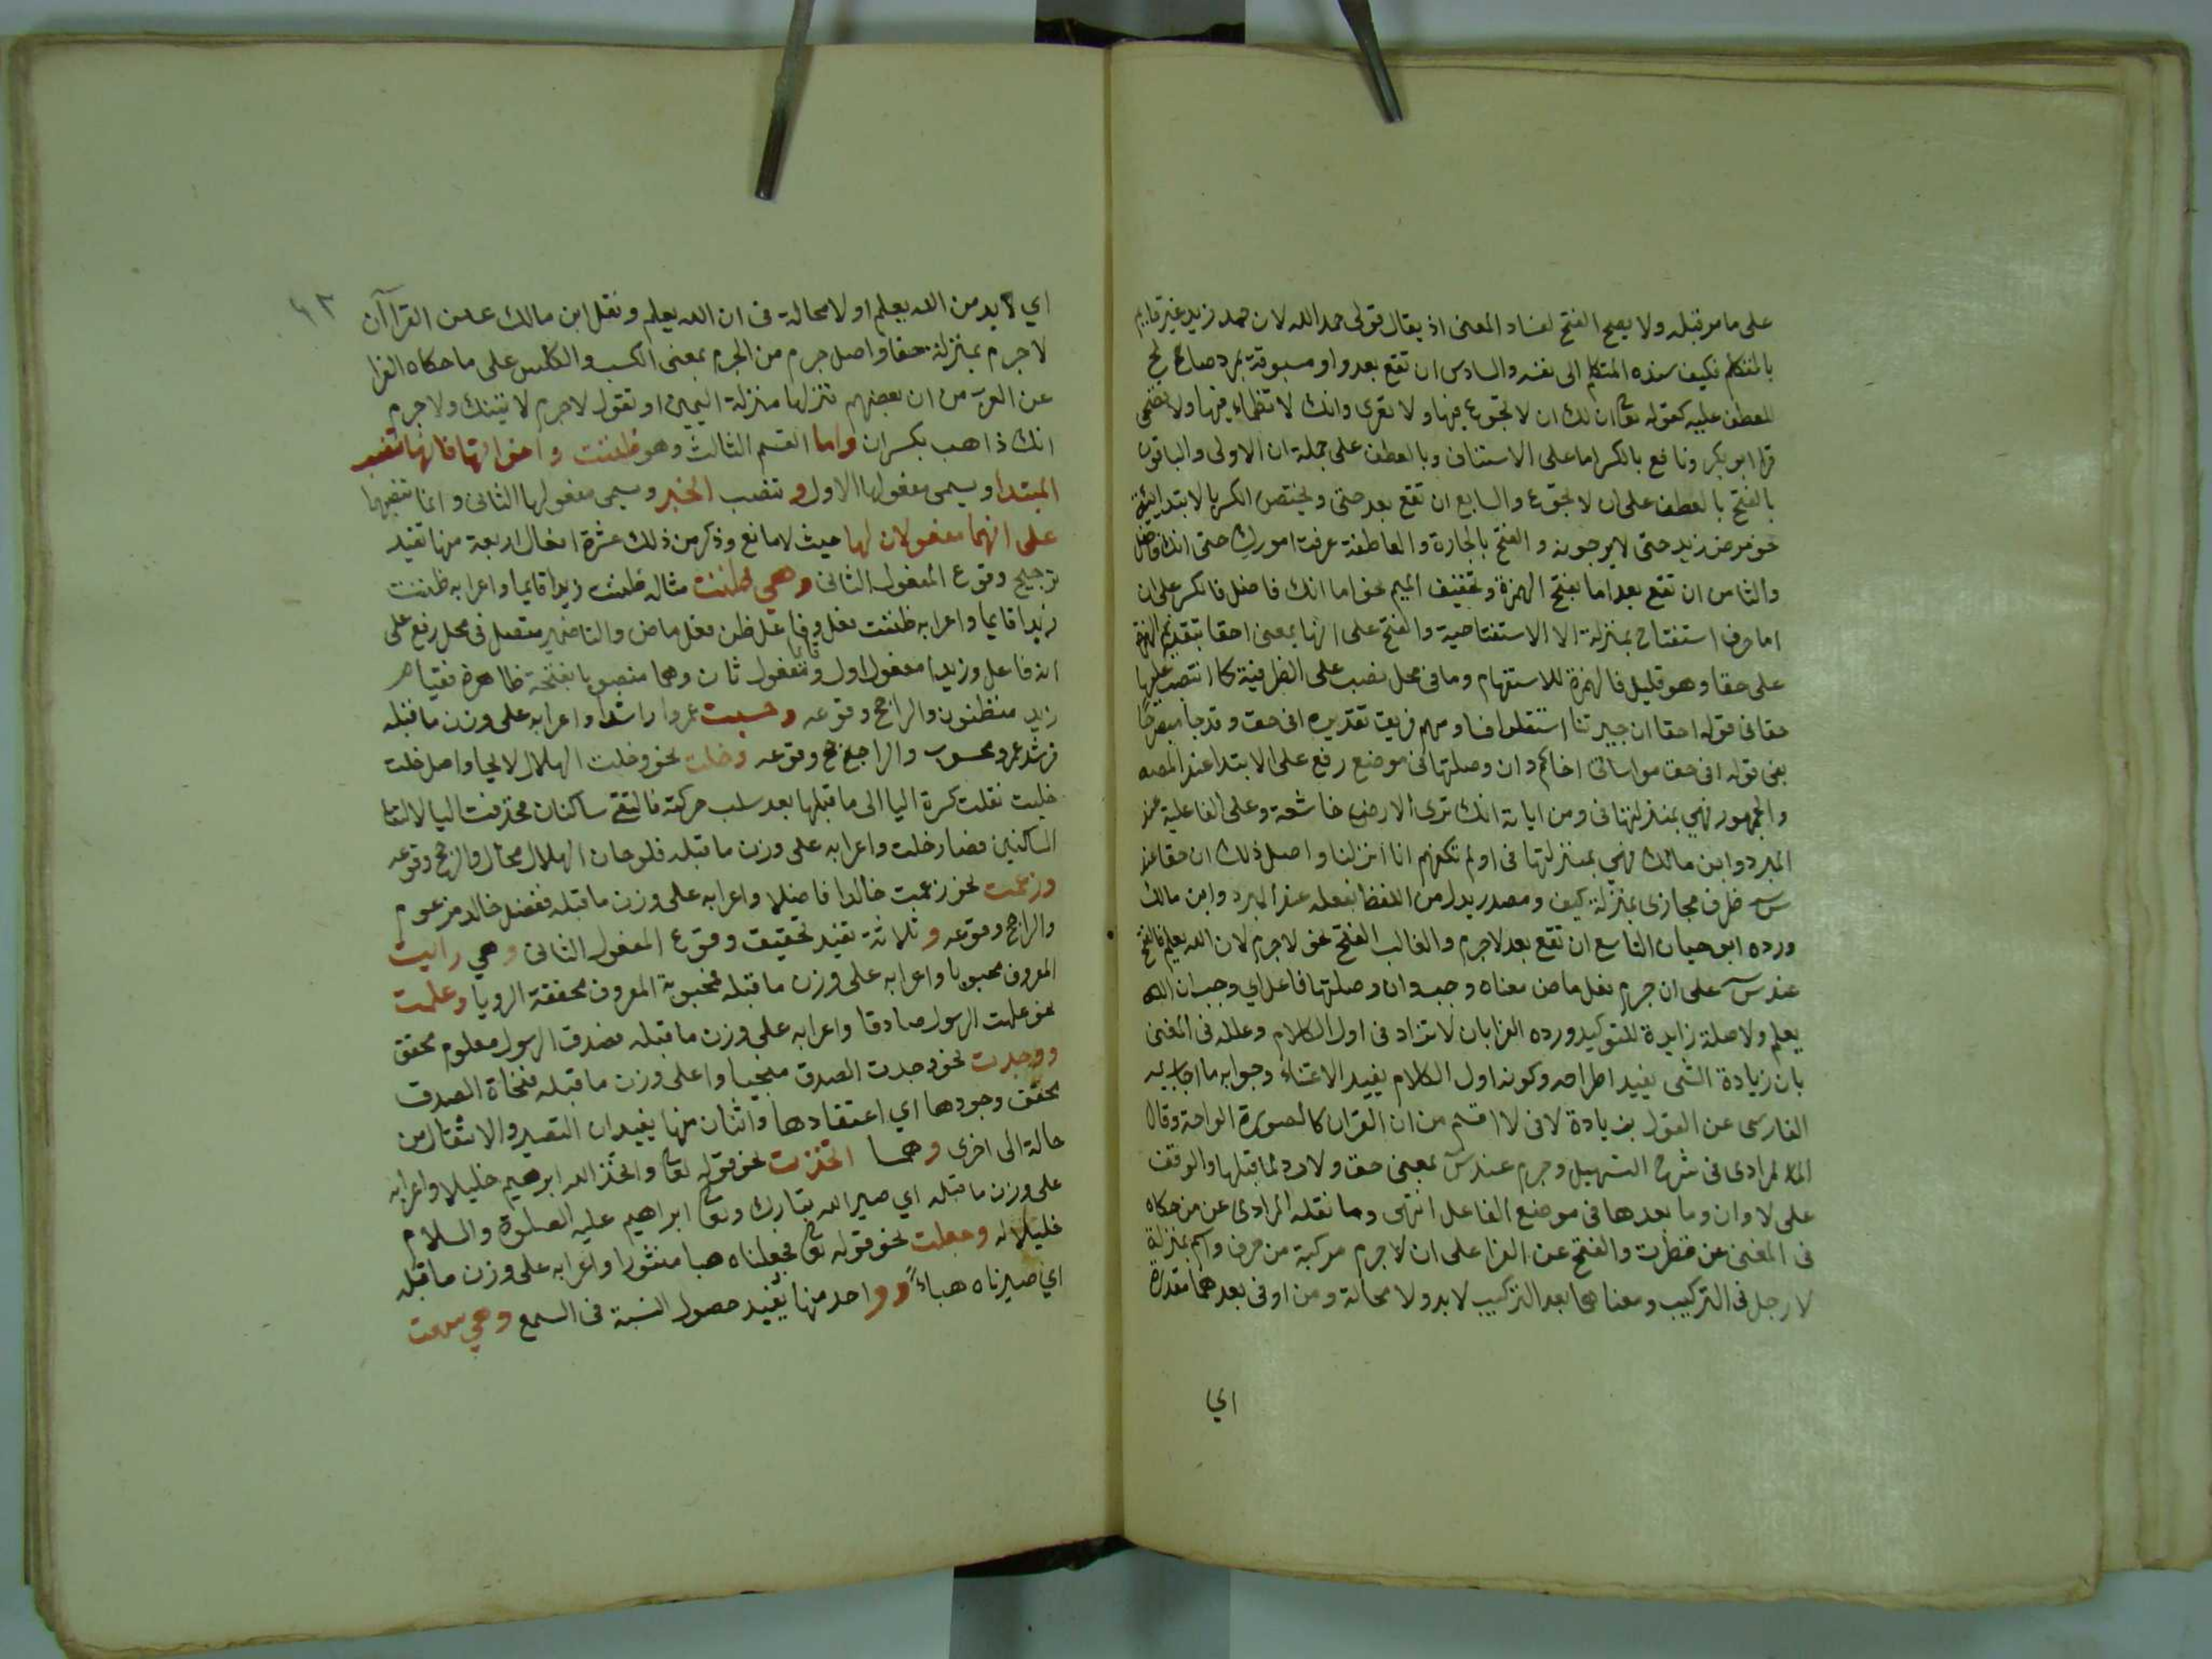 على ما مر قبله ولا يصح الفتح لفساد المعنى اذ يقال قولى حمد الله لان حمد زيد غير قايم
بالمتكلم فكيف سنده المتكلم الى نفسه والسادس ان تقع بعد واو مسبوقة بمفرد صالح
للعطف عليه كقوله تع ان لك ان لا تجوع فيها ولا تعرى وانك لا تظماء فيها ولا تضحى
قرا ابو بكر ونافع بالكسر اما على الاستناف وبالعطف على جملة ان الاولى والباقون
بالفتح بالعطف على ان لا تجوع والسابع ان تقع بعد حتى ويختص الكسر بالابتدائية
نحو مرض زيد حتى لا يرجونه والفتح بالجارة والعاطفة عرفت امورك حتى انك فاضل
والثامن ان تقع بعد اما بفتح الهمزة وتخفيف الميم نحو اما انك فاضل فالكسر على ان
اما حرف استفتاح بمنزلة الا الاستفتاحية والفتح على انها بمعنى احقا بتقديم الهمزة
على حقا وهو قليل فالهمزة للاستفهام وما فى محل نصب على الظرفية كما انتصب عليها
حقا فى قوله احقا ان جيرتنا استقلوا فنا ومنهم فريق تقديره افى حق وقد جا مصرحا
بفى قوله افى حق مواساتى اخاكم وان وصلتها فى موضع رفع على الابتدا عند
والجمهور فهي بمنزلتها فى ومن اياته انك ترى الارض خاشعة وعلى الفاعلية عند
المبرد وابن مالك فهي بمنزلتها فى اولم تكفهم انا انزلنا واصل ذلك ان حقا عند
س ظرف مجازى بمنزلة كيف ومصدر بدل من اللفظ بفعله عند المبرد وابن مالك
ورده ابو حيان التاسع ان تقع بعد لا جرم والغالب الفتح نحو لا جرم لان الله يعلم فالفتح
عند س على ان جرم فعل ماض معناه وجب وان وصلتها فاعل اي وجب ان الله
يعلم ولا صلة زايدة للتوكيد ورده الفرا بان لا تزاد فى اول الكلام وعلله فى المغنى
بان زيادة الشى يفيد اطراحه وكونه اول الكلام يفيد الاعتناء وجوابه ما اجاب به
الفارسى عن القول بزيادة لا فى لا اقسم من ان القران كالصورة الواحة وقال
الملا المرادى فى شرح التسهيل وجرم عند س بمعنى حق ولا رد لما قبلها والوقف
على لا وان وما بعدها فى موضع الفاعل انتهى وما نقله المرادى عن من حكاه
فى المغنى عن قطرب والفتح عند الفرا على ان لا جرم مركبة من حرف واسم بمنزلة
لا رجل فى التركيب ومعناها بعد التركيب لا بد ولا محالة ومن او فى بعد هما مقدرة
اي
٤٣
اي لا بد من الله يعلم او لا محالة فى ان الله يعلم ونقل ابن مالك عن الفراان
لا جرم بمنزلة حقا واصل جرم من الجرم بمعنى الكسب والكسر على ما حكاه الفرا
عن العرب من ان بعضهم نزلها منزلة اليمين او تقول لا جرم لا تينك ولا جرم
انك ذاهب بكسر ان واما القسم الثالث وهو ظننت واخواتها فانها تنصب
المبتدا ويسمى مفعولها الاول وتنصب الخبر ويسمى مفعولها الثانى وانما تنصبهما
على انهما مفعولان لها حيث لا مانع وذكر من ذلك عشرة افعال اربعة منها تفيد
ترجيح وقوع المفعول الثانى وهي ظننت مثاله ظننت زيدا قايما واعرابه ظننت
زيدا قايما واعرابه ظننت فعل وفاعل ظن فعل ماض والتا ضمير متصل فى محل رفع على
انه فاعل وزيدا مفعول اول وقايما مفعول ثان وهما منصوبا بفتحة ظاهرة فقيام
زيد منظنون والراجح وقوعه وحسبت عمروا راشدا واعرابه على وزن ما قبله
فرشد عمرو محسوب والراجح وقوعه وخلت نحو وخلت الهلال لايحا واصل خلت
خليت نقلت كسرة اليا الى ما قبلها بعد سلب حركته فالتقى ساكنان فحذفت اليا لالتقا
الساكنين فصار خلت واعرابه على وزن ما قبله فلوحان الهلال محال والراجح وقوعه
وزعمت نحو زعمت خالدا فاضلا واعرابه على وزن ما قبله ففضل خالد مزعوم
والراجح وقوعه وثلاثة تفيد تحقيق وقوع المفعول الثانى وهي رايت
المعروف محبوبا واعرابه على وزن ما قبله فمحبوبة المعروف محققة الرويا وعلمت
نحو علمت الرسول صادقا واعرابه على وزن ما قبله فصدق الرسول معلوم محقق
ووجدت نحو وجدت الصدق منجيا واعلى وزن ما قبله فنجاة الصدق
محقق وجودها اي اعتقادها واثنان منها يفيدان التصير والانتقال من
حالة الى اخرى وهما اتخذت نحو قوله تع واتخذ الله ابرهيم خليلا واعرابه
على وزن ما قبله اي صير الله تبارك وتع ابراهيم عليه الصلوة والسلام
خليلا له وجعلت نحو قوله تع فجعلناه هبا منثورا واعرابه على وزن ما قبله
اي صيرناه هباءً وواحد منها يفيد حصول النسبة فى السمع وهي سمعت